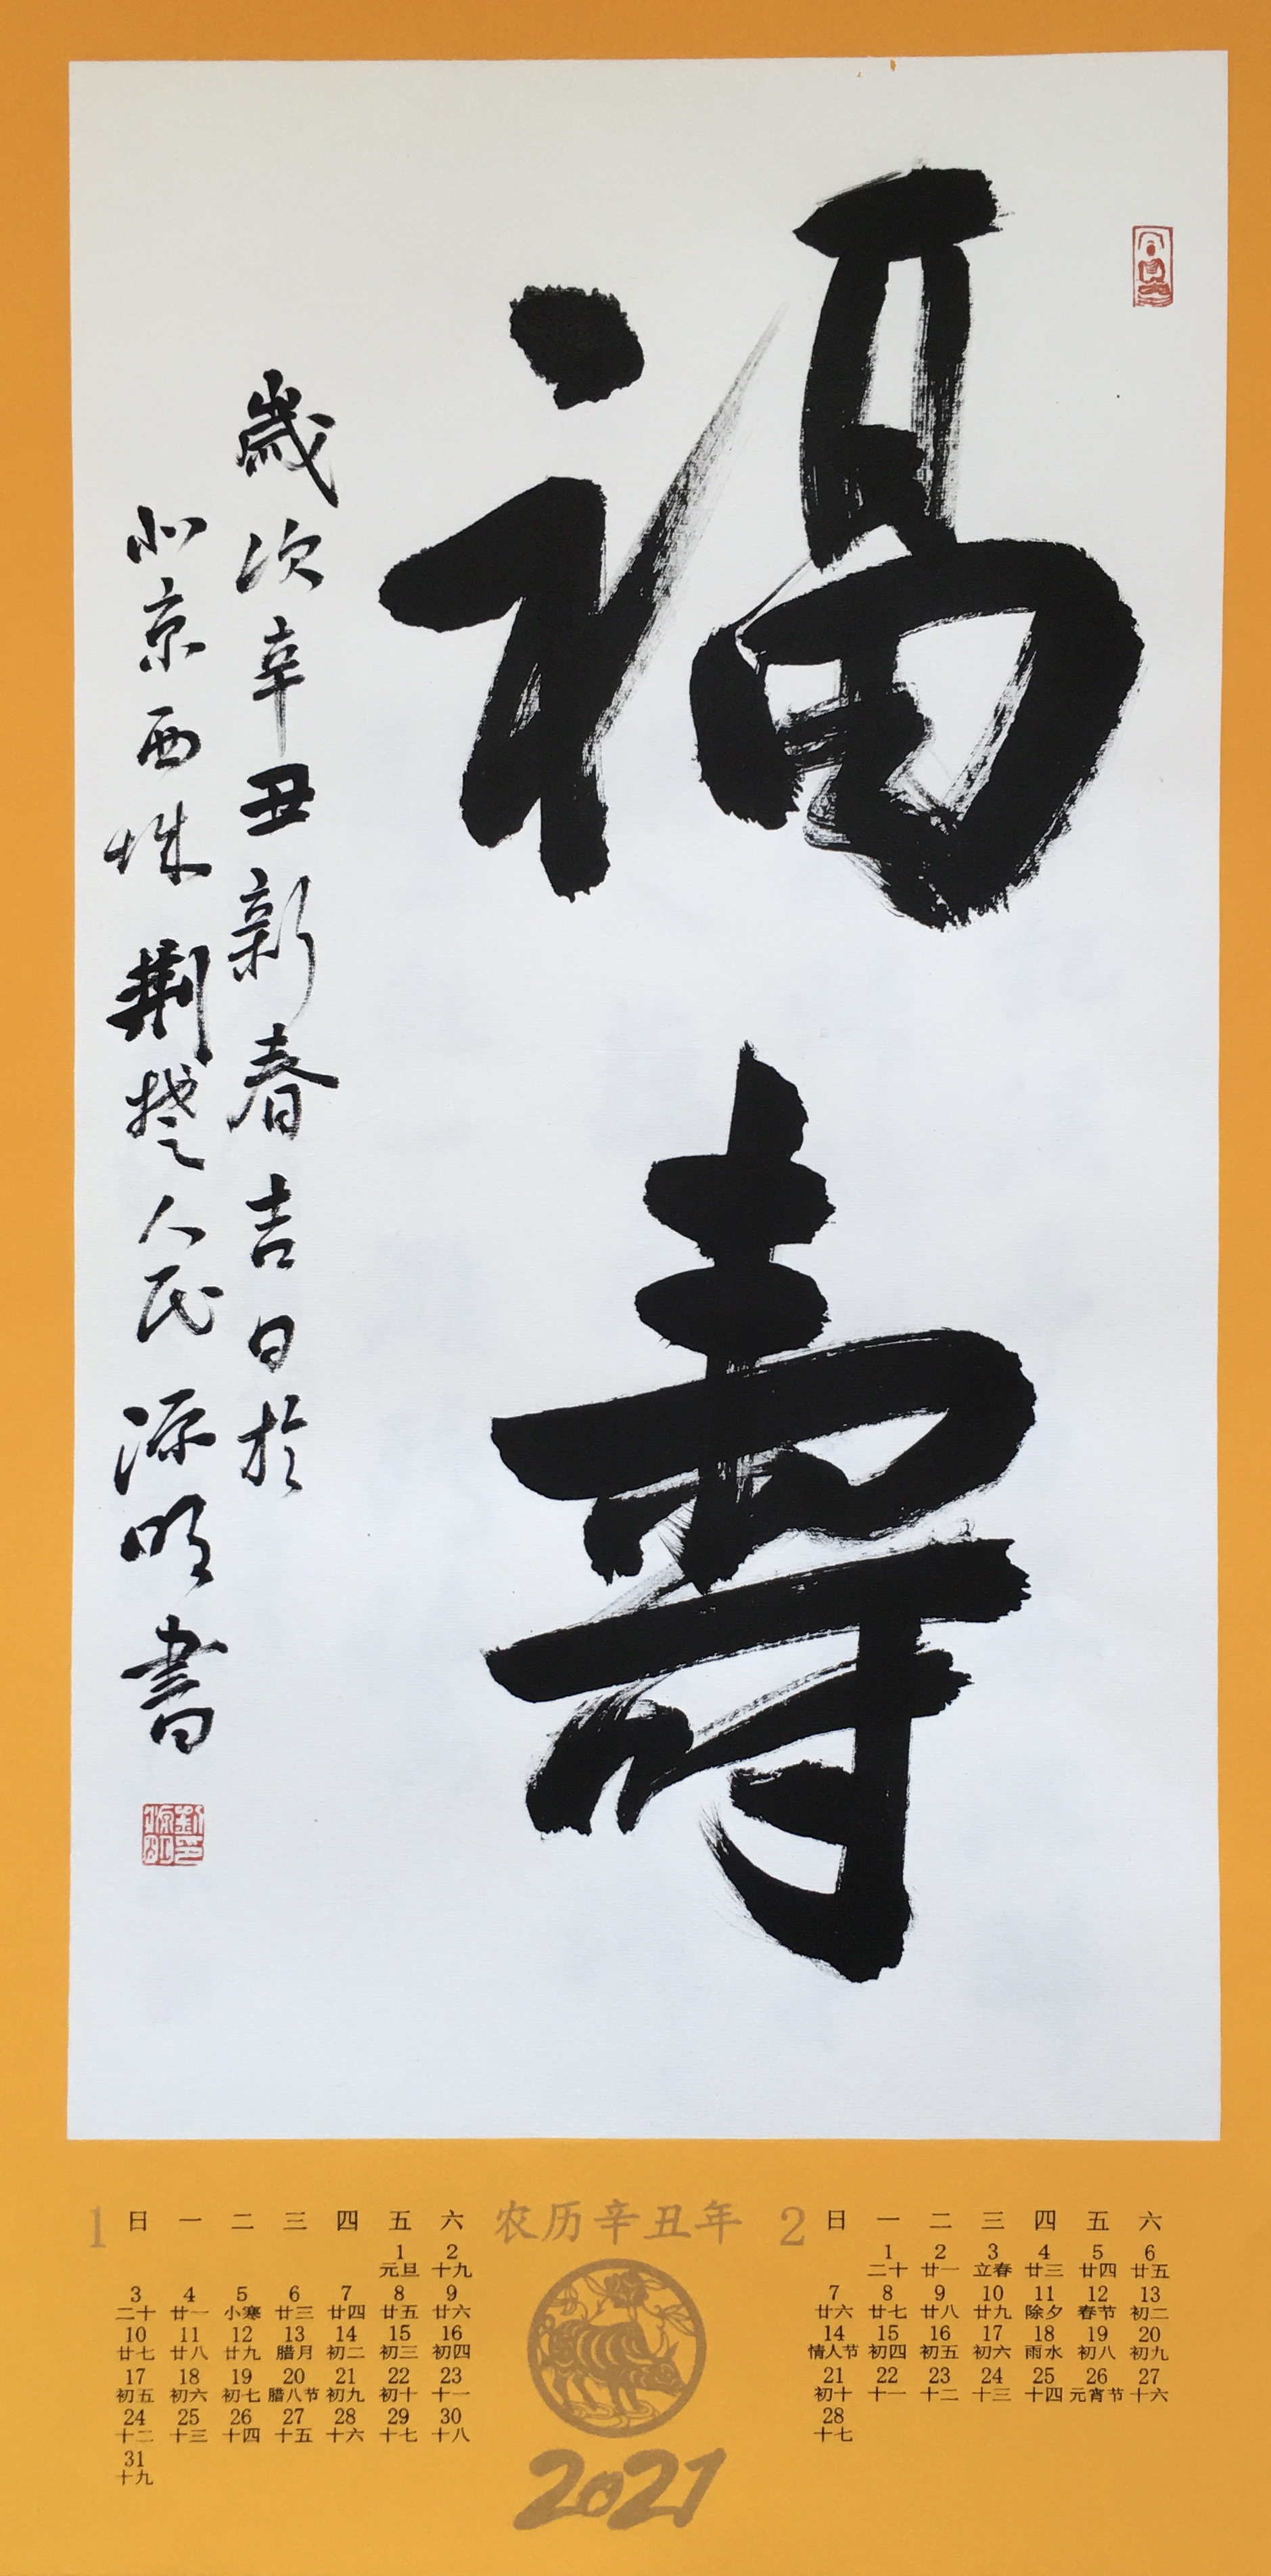 福
壽
歲次辛丑新春吉日於
北京西城 荆楚人民 源明書
农历辛丑年
2021
1
日 一 二 三 四 五 六
1 2
元旦 十九
3 4 5 6 7 8 9
二十 廿一 小寒 廿三 廿四 廿五 廿六
10 11 12 13 14 15 16
廿七 廿八 廿九 腊月 初二 初三 初四
17 18 19 20 21 22 23
初五 初六 初七 腊八节 初九 初十 十一
24 25 26 27 28 29 30
十二 十三 十四 十五 十六 十七 十八
31
十九
2
日 一 二 三 四 五 六
1 2 3 4 5 6
二十 廿一 立春 廿三 廿四 廿五
7 8 9 10 11 12 13
廿六 廿七 廿八 廿九 除夕 春节 初二
14 15 16 17 18 19 20
情人节 初四 初五 初六 雨水 初八 初九
21 22 23 24 25 26 27
初十 十一 十二 十三 十四 元宵节 十六
28
十七